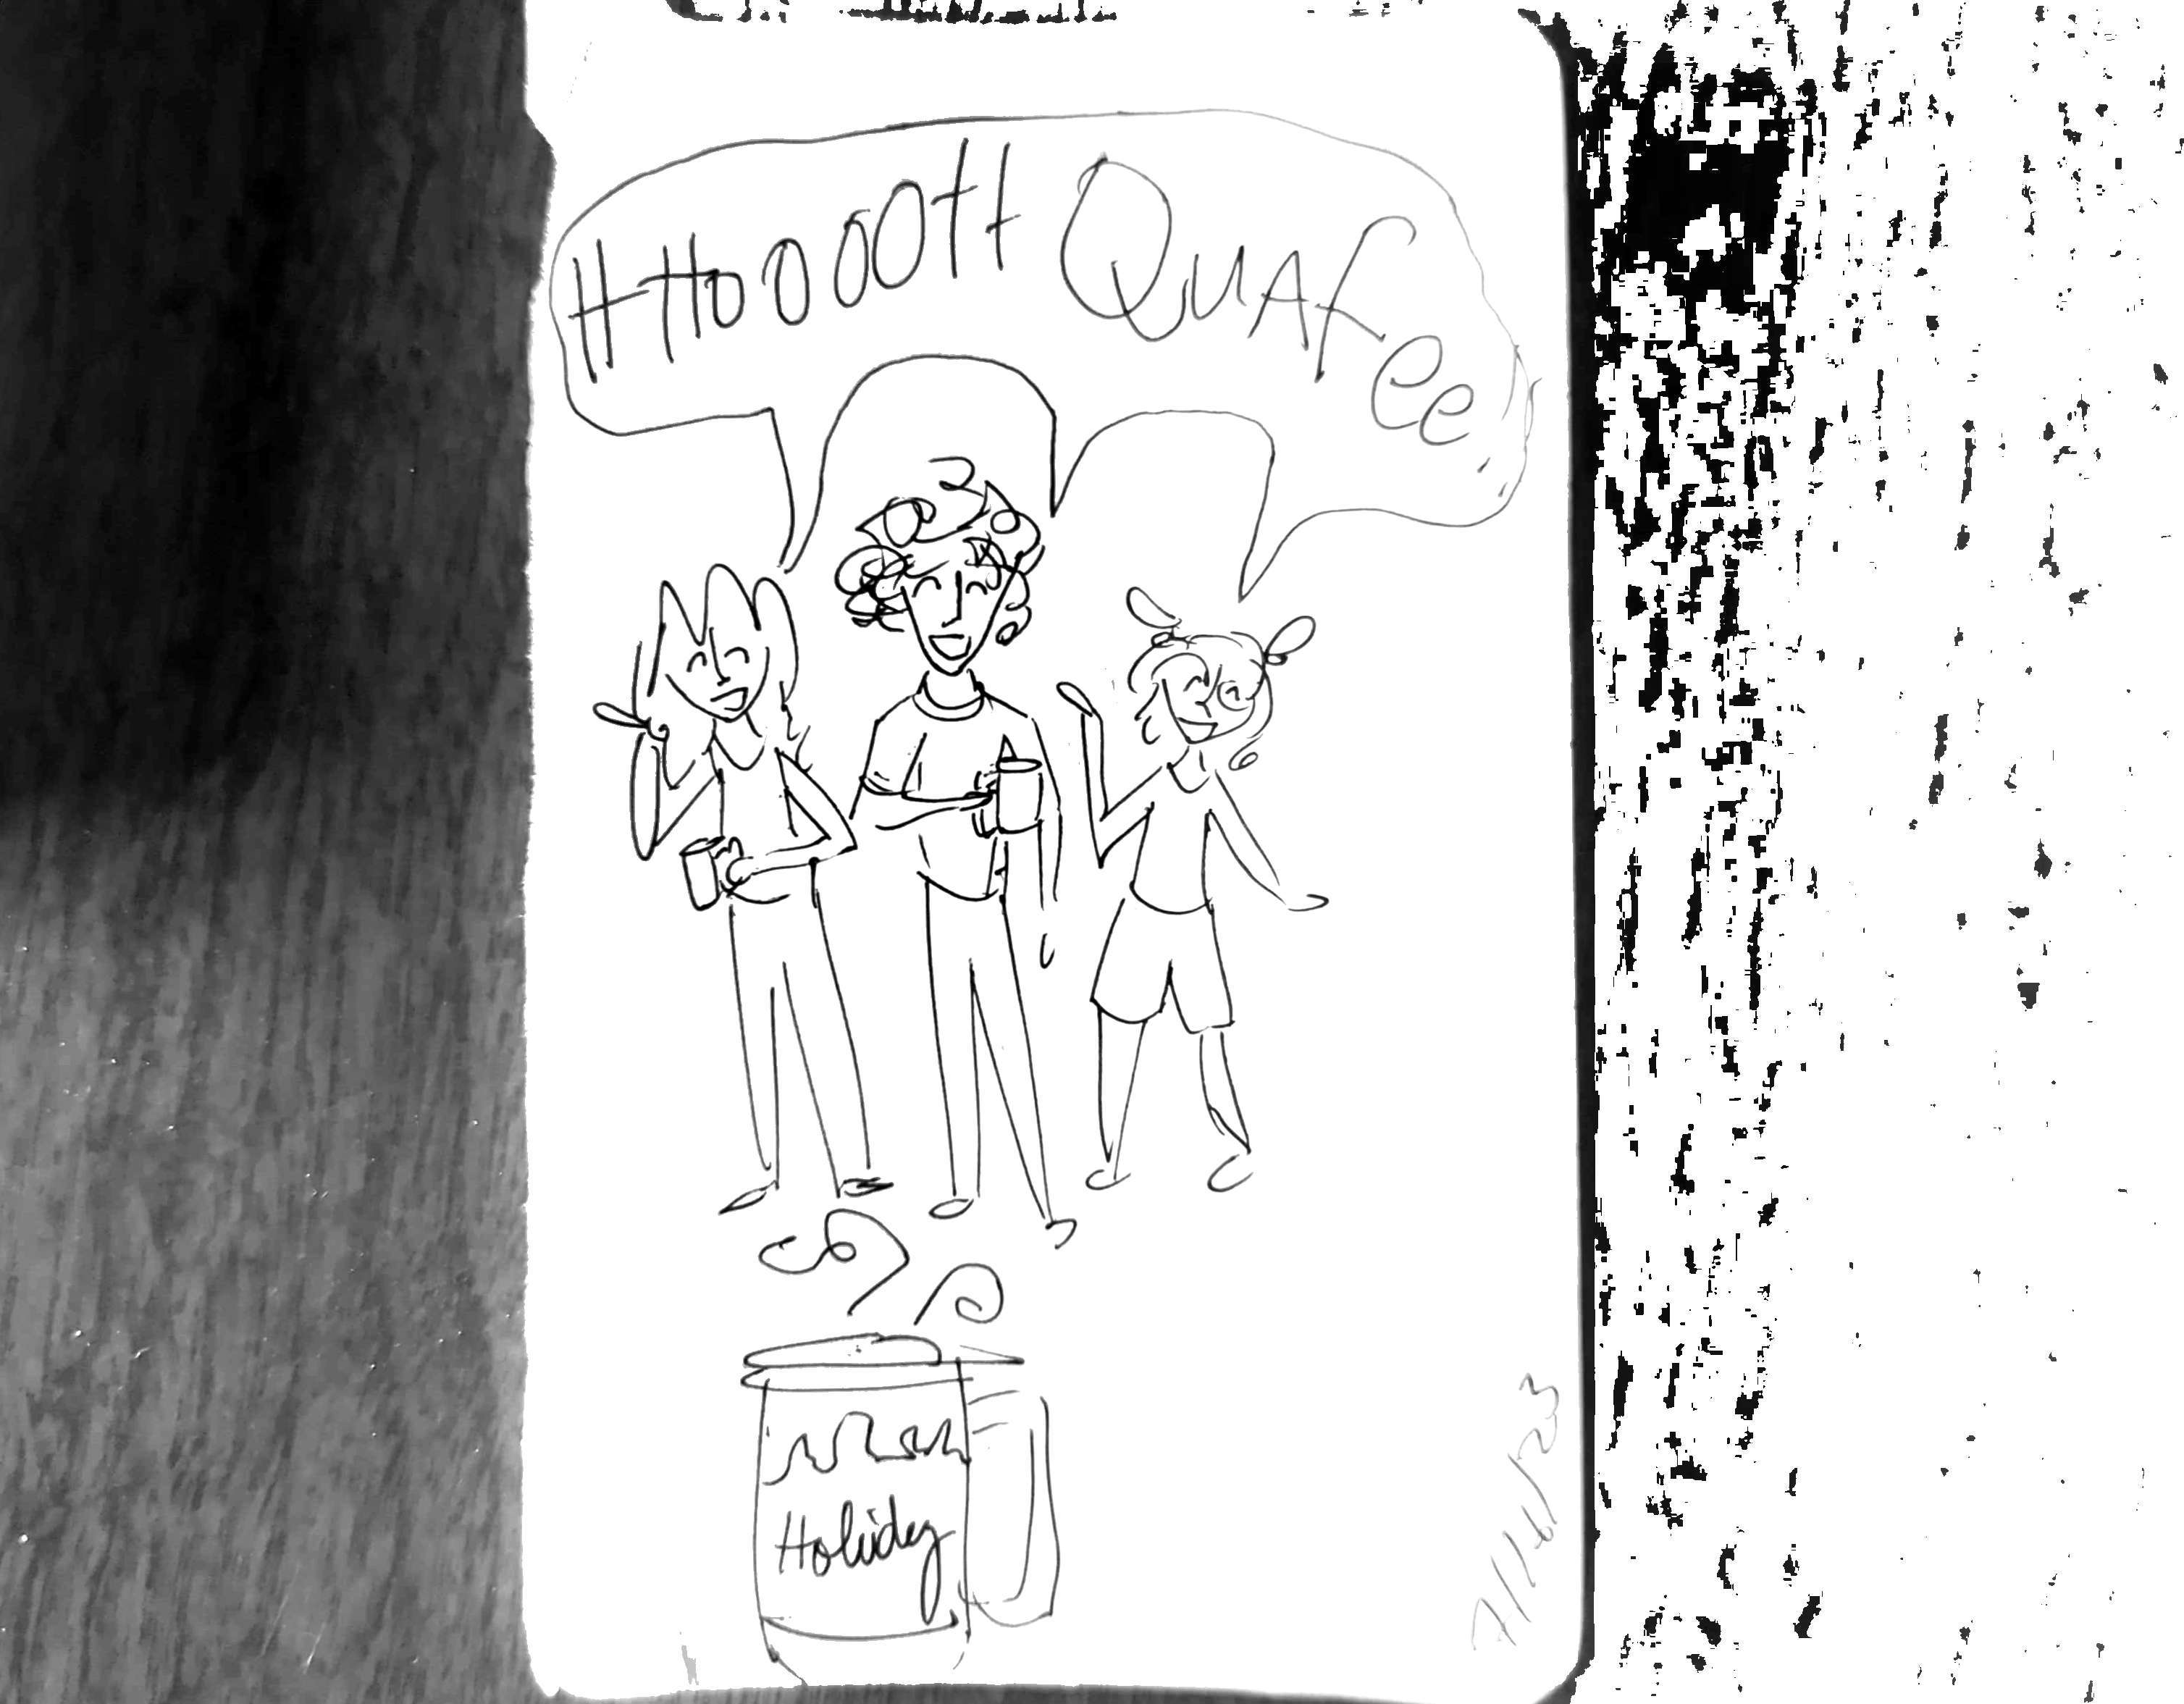 HHooOOtt QuAfee!
Holiday
7/16/23